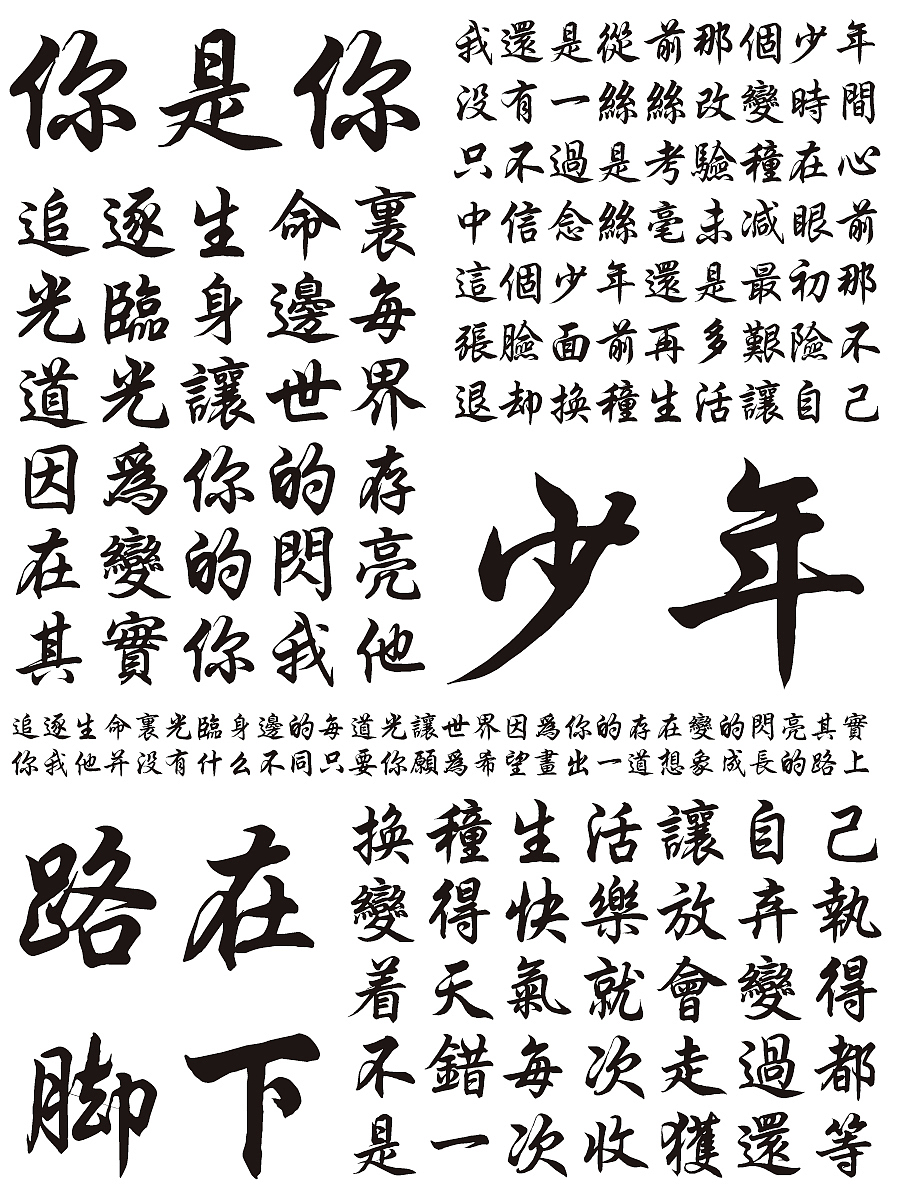 你是你
追逐生命裏
光臨身邊每
道光讓世界
因爲你的存
在變的閃亮
其實你我他
我還是從前那個少年
没有一絲絲改變時間
只不過是考驗種在心
中信念絲毫未减眼前
這個少年還是最初那
張臉面前再多艱險不
退却換種生活讓自己
少年
追逐生命裏光臨身邊的每道光讓世界因爲你的存在變的閃亮其實
你我他并没有什么不同只要你願爲希望畫出一道想象成長的路上
路在
脚下
換種生活讓自己
變得快樂放弃執
着天氣就會變得
不錯每次走過都
是一次收獲還等